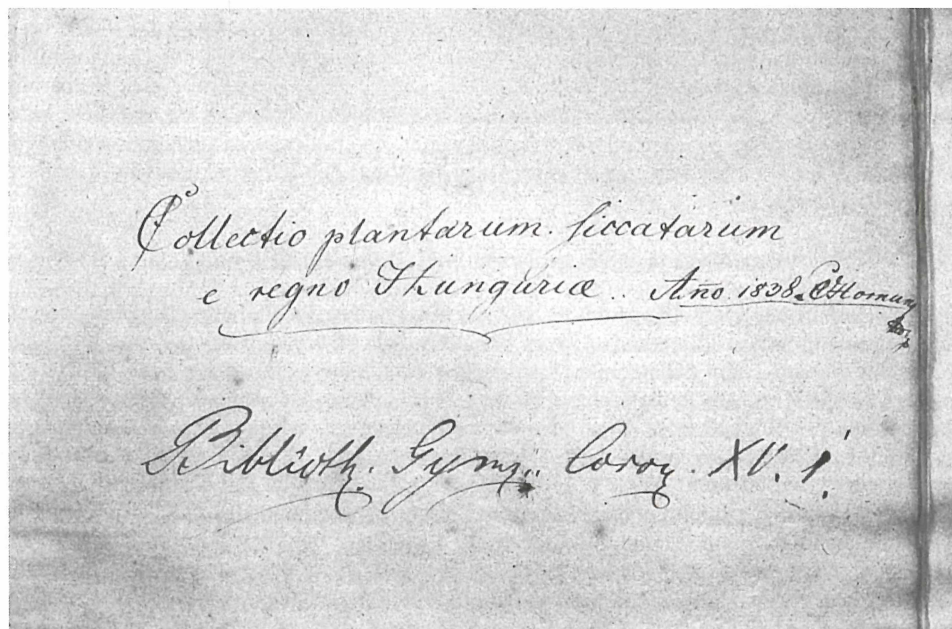 Collectio plantarum siccatarum
e regno Hungariæ. Año 1838.
Biblioth. Gymn. Coron. XV. 1.